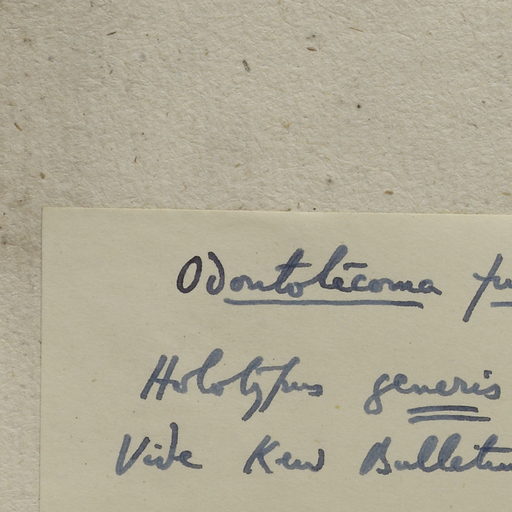 Odontotecoma
Holotypus generis
Vide Kew Bulletin